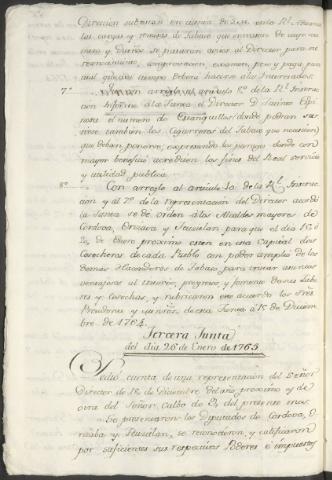 Direccion
las cargas y tercios de Tabaco que
mero y Dueños se pasaran avisos al Director para su
reconocimiento, comprovacion, examen, peso y paga, para
cuio tiempo deberan hacerse a los Interesados.
7.º Con arreglo al articulo 8.º de la Rl. Instruc
cion informe á la Junta el Director D. Jacinto Espi
nosa el numero de Estanquillos donde podran sur
tirse tambien los Cigarreros del Tabaco que necesiten
que deban ponerse, expresando los parages donde con
mayor beneficio acrediten los fines del Real servicio
y utilidad publica.
8.º Con arreglo al articulo 10 de la Rl. Instruc
cion y al 7.º de la representacion del Director acordó
la Junta se de orden á los Alcaldes mayores de
Cordova, Orizava y Teusitlan, para que el dia 15 ó
20 de Enero proximo esten en esta Capital dos
Cosecheros de cada Pueblo con poder amplio de los
demas Hacenderos de Tabaco, para tratar asuntos
ventajosos al tesoro, progreso y fomento de sus Labo
res y Cosechas, y rubricaron este acuerdo los Sres.
Presidente y que de esta Junta á 15 de Diciem
bre de 1764.
Tercera Junta
del dia 26 de Enero de 1765
Se dió cuenta de una representacion del Señor
Director de 18 de Diciembre del año proximo y de
otra del Señor Calbo de 2 del presente mes.
Se presentaron los Diputados de Cordova, O
rizaba y Teusitlan, se reconocieron, y calificaron
por suficientes sus respectivos Poderes é impuestos